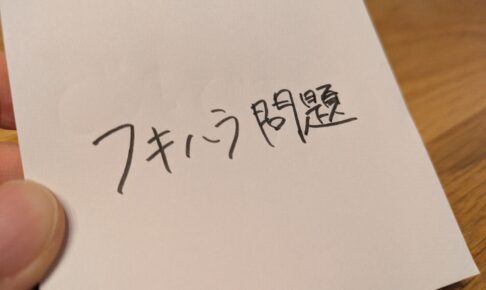 フキハラ問題